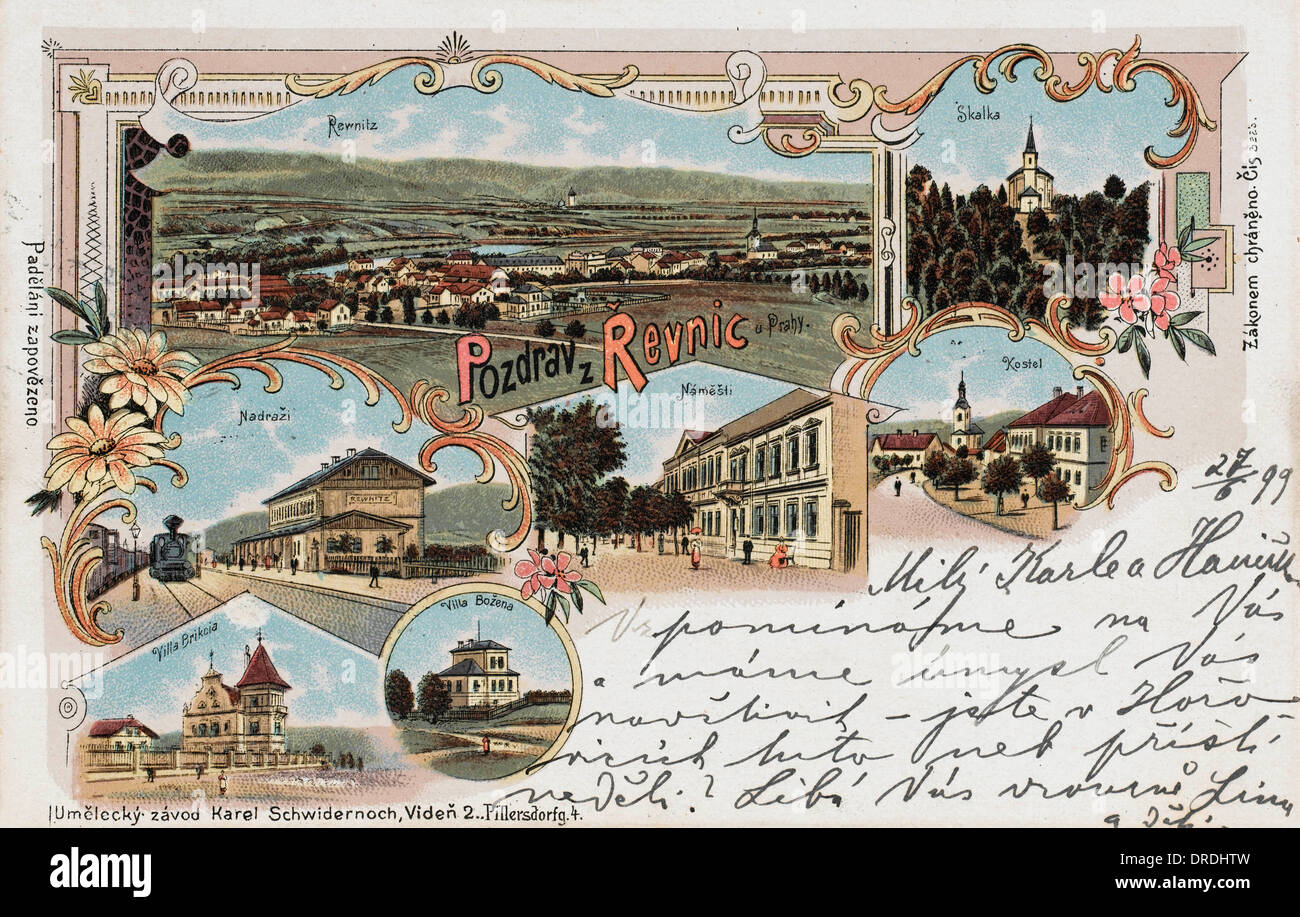 Rewnitz
Skalka
Padělání zapovězeno
Zákonem chráněno. Čís
Pozdrav z Řevnic u Prahy.
Nadraži
REWNITZ
Náměšti
Kostel
Villa Brikcia
Villa Božena
27/6 99
Milý Karle a
Vzpomínáme na Vás
a máme úmysl Vás
navštívit – jste v Hořo
vicích tuto neb příští
neděli? Líbá Vás vroucně
a
Umělecký závod Karel Schwidernoch, Videň 2.. Pillersdorfg. 4.
alamy
Image ID: DRDHTW
www.alamy.com